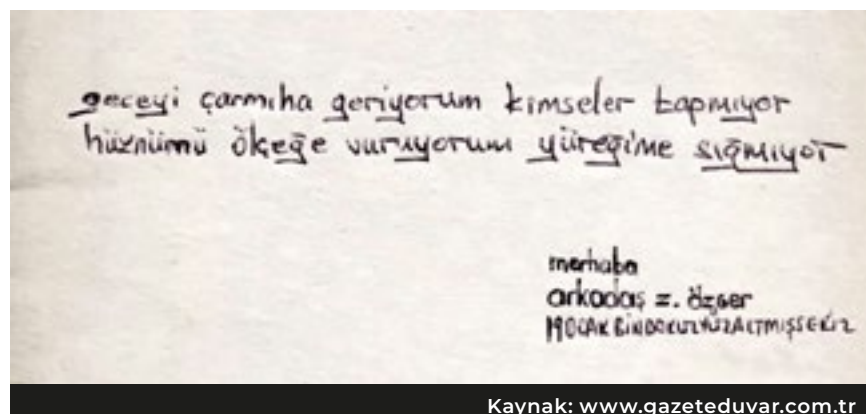 geceyi çarmıha geriyorum kimseler tapmıyor
hüznümü ökeğe vuruyorum yüreğime sığmıyor
merhaba
arkadaş z. özger
19 OCAK BİNDOKUZYÜZALTMIŞSEKİZ
Kaynak: www.gazeteduvar.com.tr